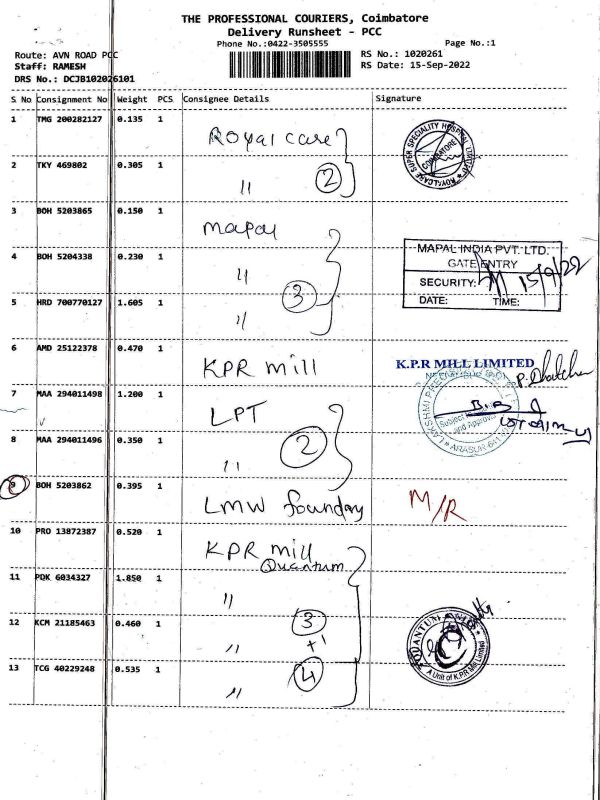 THE PROFESSIONAL COURIERS, Coimbatore
Delivery Runsheet - PCC
Phone No.:0422-3505555
Page No.:1
Route: AVN ROAD PCC
Staff: RAMESH
DRS No.: DCJB102026101
RS No.: 1020261
RS Date: 15-Sep-2022
S No Consignment No Weight PCS Consignee Details Signature
1 TMG 200282127 0.135 1 Royal care
2 TKY 469802 0.305 1 " 2
ROYALCARE SUPER SPECIALITY HOSPITAL LIMITED
COIMBATORE
3 BOH 5203865 0.150 1 Mapal
4 BOH 5204338 0.230 1 "
5 HRD 700770127 1.605 1 " 3
MAPAL INDIA PVT. LTD.
GATE ENTRY
SECURITY: 15/9/22
DATE: TIME:
6 AMD 25122378 0.470 1 KPR mill
K.P.R MILL LIMITED
7 MAA 294011498 1.200 1 LPT
8 MAA 294011496 0.350 1 " 2
9 BOH 5203862 0.395 1 LMW foundry M/R
10 PRO 13872387 0.520 1 KPR mill
Quantum
11 PDK 6034327 1.850 1 "
12 KCM 21185463 0.460 1 " 3
+1
13 TCG 40229248 0.535 1 " 4
A Unit of K.P.R Mill Limited